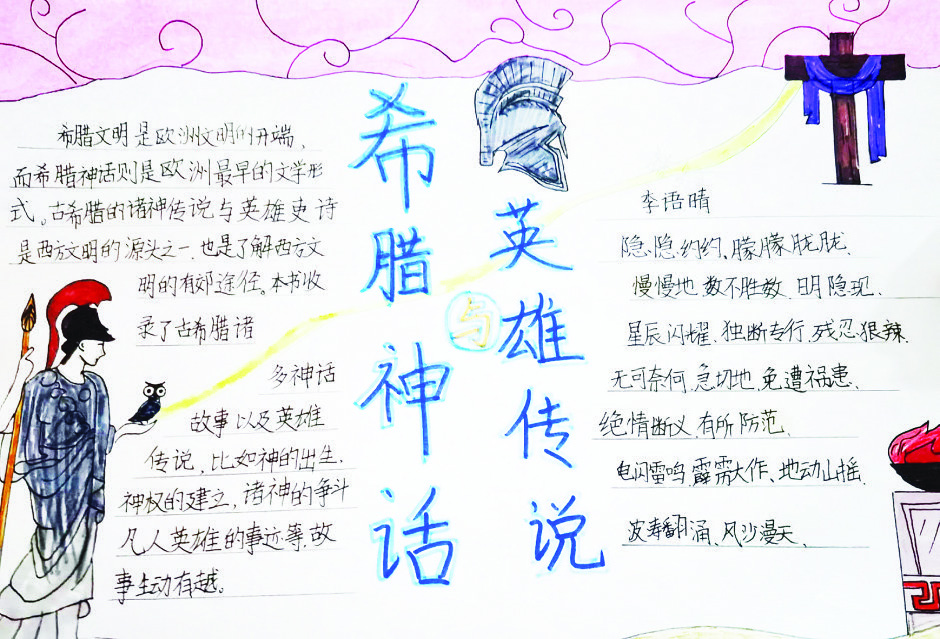 希腊神话
与
英雄传说
希腊文明是欧洲文明的开端,
而希腊神话则是欧洲最早的文学形
式。古希腊的诸神传说与英雄史诗
是西方文明的源头之一、也是了解西方文
明的有郊途径。本书收
录了古希腊诸
多神话
故事以及英雄
传说,比如神的出生,
神权的建立,诸神的争斗
凡人英雄的事迹等,故
事生动有越。
李语晴
隐隐约约、朦朦胧胧、
慢慢地 数不胜数、明隐现、
星辰闪耀、独断专行、残忍狠辣、
无可奈何、急切地、免遭祸患、
绝情断义、有所防范、
电闪雷鸣、霹雳大作、地动山摇、
波涛翻涌、风沙漫天、